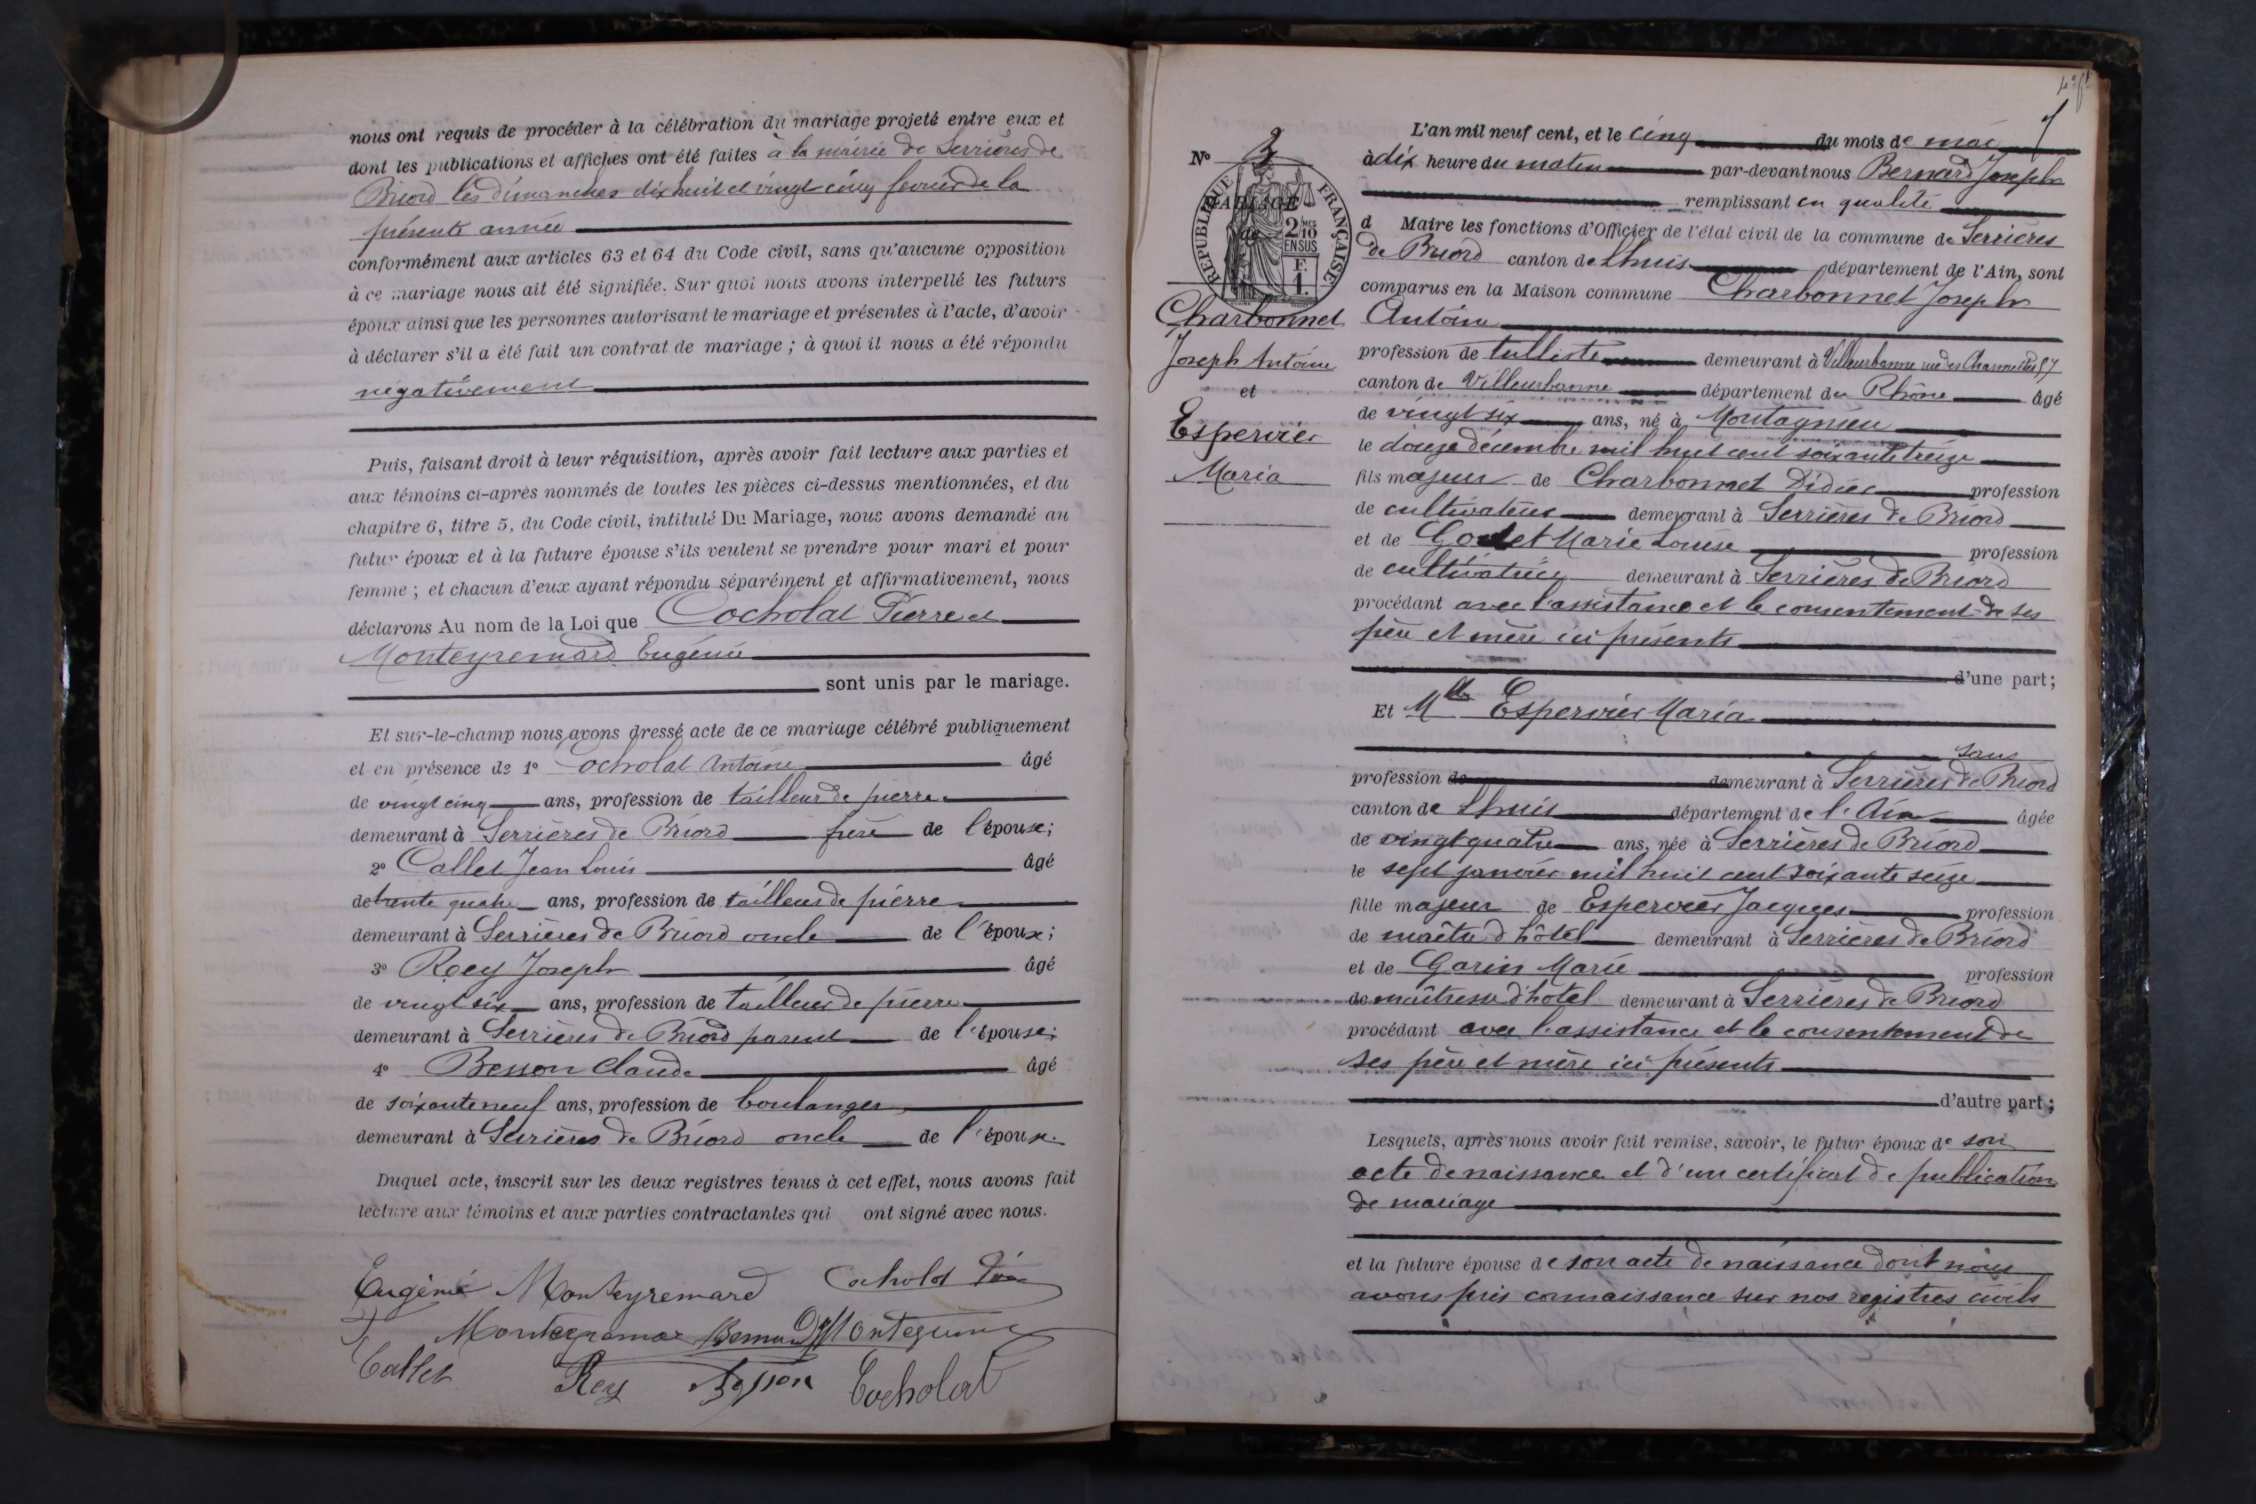 nous ont requis de procéder à la célébration du mariage projeté entre eux et
dont les publications et affiches ont été faites à la mairie de Serrières de
Briord les dimanches dix huit et vingt cinq février de la
présente année
conformément aux articles 63 et 64 du Code civil, sans qu'aucune opposition
à ce mariage nous ait été signifiée. Sur quoi nous avons interpellé les futurs
époux ainsi que les personnes autorisant le mariage et présentes à l'acte, d'avoir
à déclarer s'il a été fait un contrat de mariage ; à quoi il nous a été répondu
négativement
Puis, faisant droit à leur réquisition, après avoir fait lecture aux parties et
aux témoins ci-après nommés de toutes les pièces ci-dessus mentionnées, et du
chapitre 6, titre 5, du Code civil, intitulé Du Mariage, nous avons demandé au
futur époux et à la future épouse s'ils veulent se prendre pour mari et pour
femme ; et chacun d'eux ayant répondu séparément et affirmativement, nous
déclarons Au nom de la Loi que Cocholat Pierre et
Monteyremard Eugénie
sont unis par le mariage.
Et sur-le-champ nous avons dressé acte de ce mariage célébré publiquement
et en présence de 1° Cocholat Antoine âgé
de vingt cinq ans, profession de tailleur de pierre
demeurant à Serrières de Briord frère de l'épouse;
2° Callet Jean Louis âgé
de trente quatre ans, profession de tailleur de pierre
demeurant à Serrières de Briord oncle de l'époux;
3° Rey Joseph âgé
de vingt six ans, profession de tailleur de pierre
demeurant à Serrières de Briord parent de l'épouse;
4° Besson Claude âgé
de soixante neuf ans, profession de boulanger
demeurant à Serrières de Briord oncle de l'épouse.
Duquel acte, inscrit sur les deux registres tenus à cet effet, nous avons fait
lecture aux témoins et aux parties contractantes qui ont signé avec nous.
Eugénie Monteyremard Cocholat
Bernard
Callet Rey Besson Cocholat
N° 3
MARIAGE
de
RÉPUBLIQUE FRANÇAISE
2/10
EN SUS
F.
1.
Charbonnet
Joseph Antoine
et
Espervier
Maria
7
L'an mil neuf cent, et le cinq du mois de mai
à dix heure du matin par-devant nous Bernard Joseph
remplissant en qualité
d Maire les fonctions d'Officier de l'état civil de la commune de Serrières
de Briord canton de Lhuis département de l'Ain, sont
comparus en la Maison commune Charbonnet Joseph
Antoine
profession de tulliste demeurant à Villeurbanne rue des Charmettes 57
canton de Villeurbanne département du Rhône âgé
de vingt six ans, né à Montagnieu
le douze décembre mil huit cent soixante treize
fils majeur de Charbonnet Didier profession
de cultivateur demeurant à Serrières de Briord
et de Godet Marie Louise profession
de cultivatrice demeurant à Serrières de Briord
procédant avec l'assistance et le consentement de ses
père et mère ici présents
d'une part;
Et Mlle Espervier Maria
sans
profession de demeurant à Serrières de Briord
canton de Lhuis département de l'Ain âgée
de vingt quatre ans, née à Serrières de Briord
le sept janvier mil huit cent soixante seize
fille majeur de Espervier Jacques profession
de maître d'hôtel demeurant à Serrières de Briord
et de Garin Marie profession
de maîtresse d'hôtel demeurant à Serrières de Briord
procédant avec l'assistance et le consentement de
ses père et mère ici présents
d'autre part;
Lesquels, après nous avoir fait remise, savoir, le futur époux de son
acte de naissance et d'un certificat de publication
de mariage
et la future épouse de son acte de naissance dont nous
avons pris connaissance sur nos registres civils